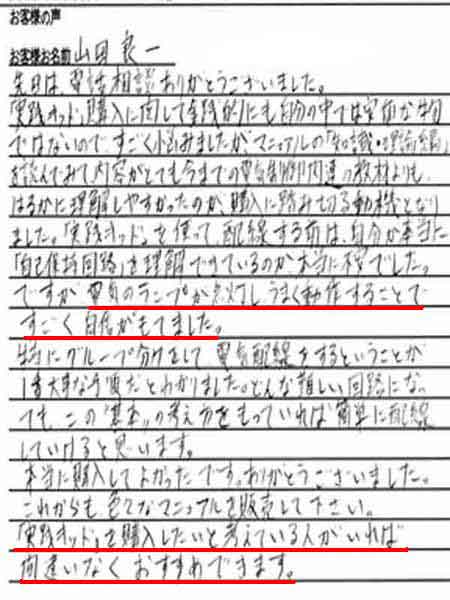 お客様の声
お客様お名前 山田 良一
先日は、電話相談ありがとうございました。
「実践キッド」購入に関して金銭的にも自分の中では安価な物
ではないので、すごく悩みましたがマニュアルの「知識・理論編」
を読んでみて内容がとても今までの電気制御関連の教材よりも、
はるかに理解しやすかったのが、購入に踏み切る動機となり
ました。「実践キッド」を使って、配線する前は、自分が本当に
「自己保持回路」を理解できているのか本当に不安でした。
ですが電気のランプが点灯し、うまく動作することで
すごく自信がもてました。
特にグループ分けをして、電気配線をするということが
1番大事な手順だとわかりました。どんな難しい回路になっ
ても、この“基本”の考え方をもっていれば簡単に配線
していけると思います。
本当に購入してよかったです。ありがとうございました。
これからも、色々なマニュアルを販売して下さい。
「実践キッド」を購入したいと考えている人がいれば
間違いなくおすすめできます。